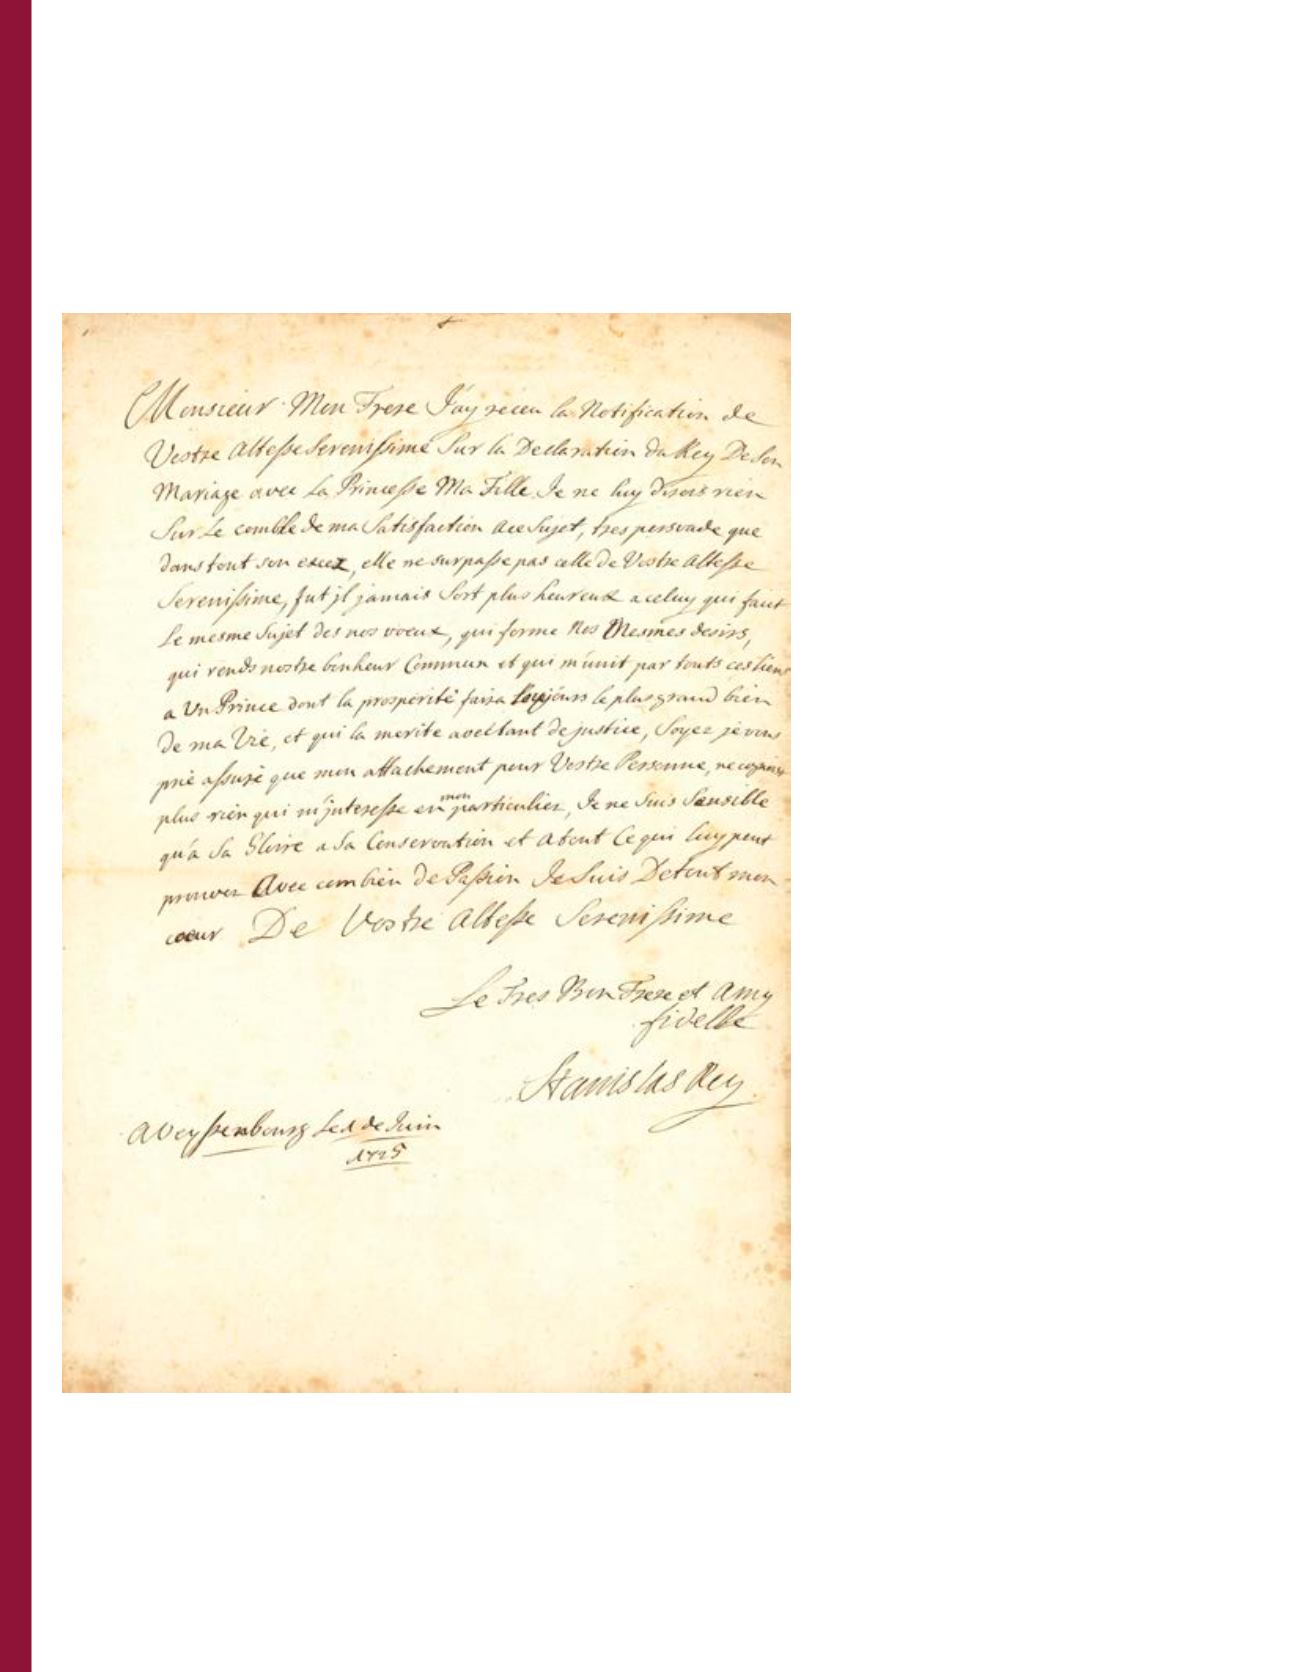 Monsieur Mon Frere J'ay receu la Notification de
Vostre Altesse Serenissime Sur la Declaration du Roy De Son
Mariage avec La Princesse Ma Fille. Je ne luy disois rien
Sur Le comble de ma Satisfaction a ce Sujet, tres persvade que
dans tout son excez, elle ne surpasse pas celle de Vostre Altesse
Serenissime, fut jl jamais Sort plus heureux a celuy qui fait
Le mesme Sujet des nos voeux, qui forme Nos Mesmes desirs,
qui rends nostre bonheur Commun et qui m'unit par touts ces liens
a Un Prince dont la prosperité faira toujours le plus grand bien
de ma Vie, et qui la merite avec tant de justice, Soyez je vous
prie assuré que mon attachement pour Vostre Personne,
plus rien qui m'jnteresse en mon particulier, Je ne Suis Sensible
qu'a Sa Gloire a Sa Conservation et a tout Ce qui luy peut
prouver Avec combien de Passion Je Suis De tout mon
coeur De Vostre Altesse Serenissime
Le Tres Bon Frere et Amy
fidelle
Stanislas Roy
a Veyssenbourg Le 1 de Juin
1725